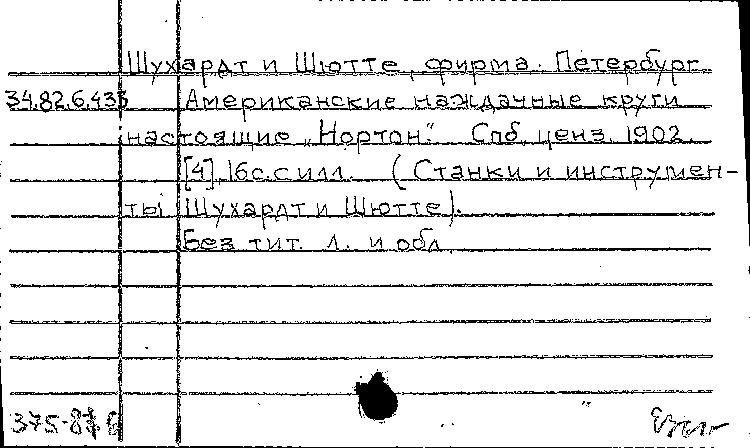 Шухардт и Шютте, фирма. Петербург.
34.82.6.433 Американские наждачные круги
настоящие "Нортон". Спб, ценз. 1902.
[4], 16 с. с илл. (Станки и инструмен-
ты Шухардт и Шютте).
Без тит. л. и обл.